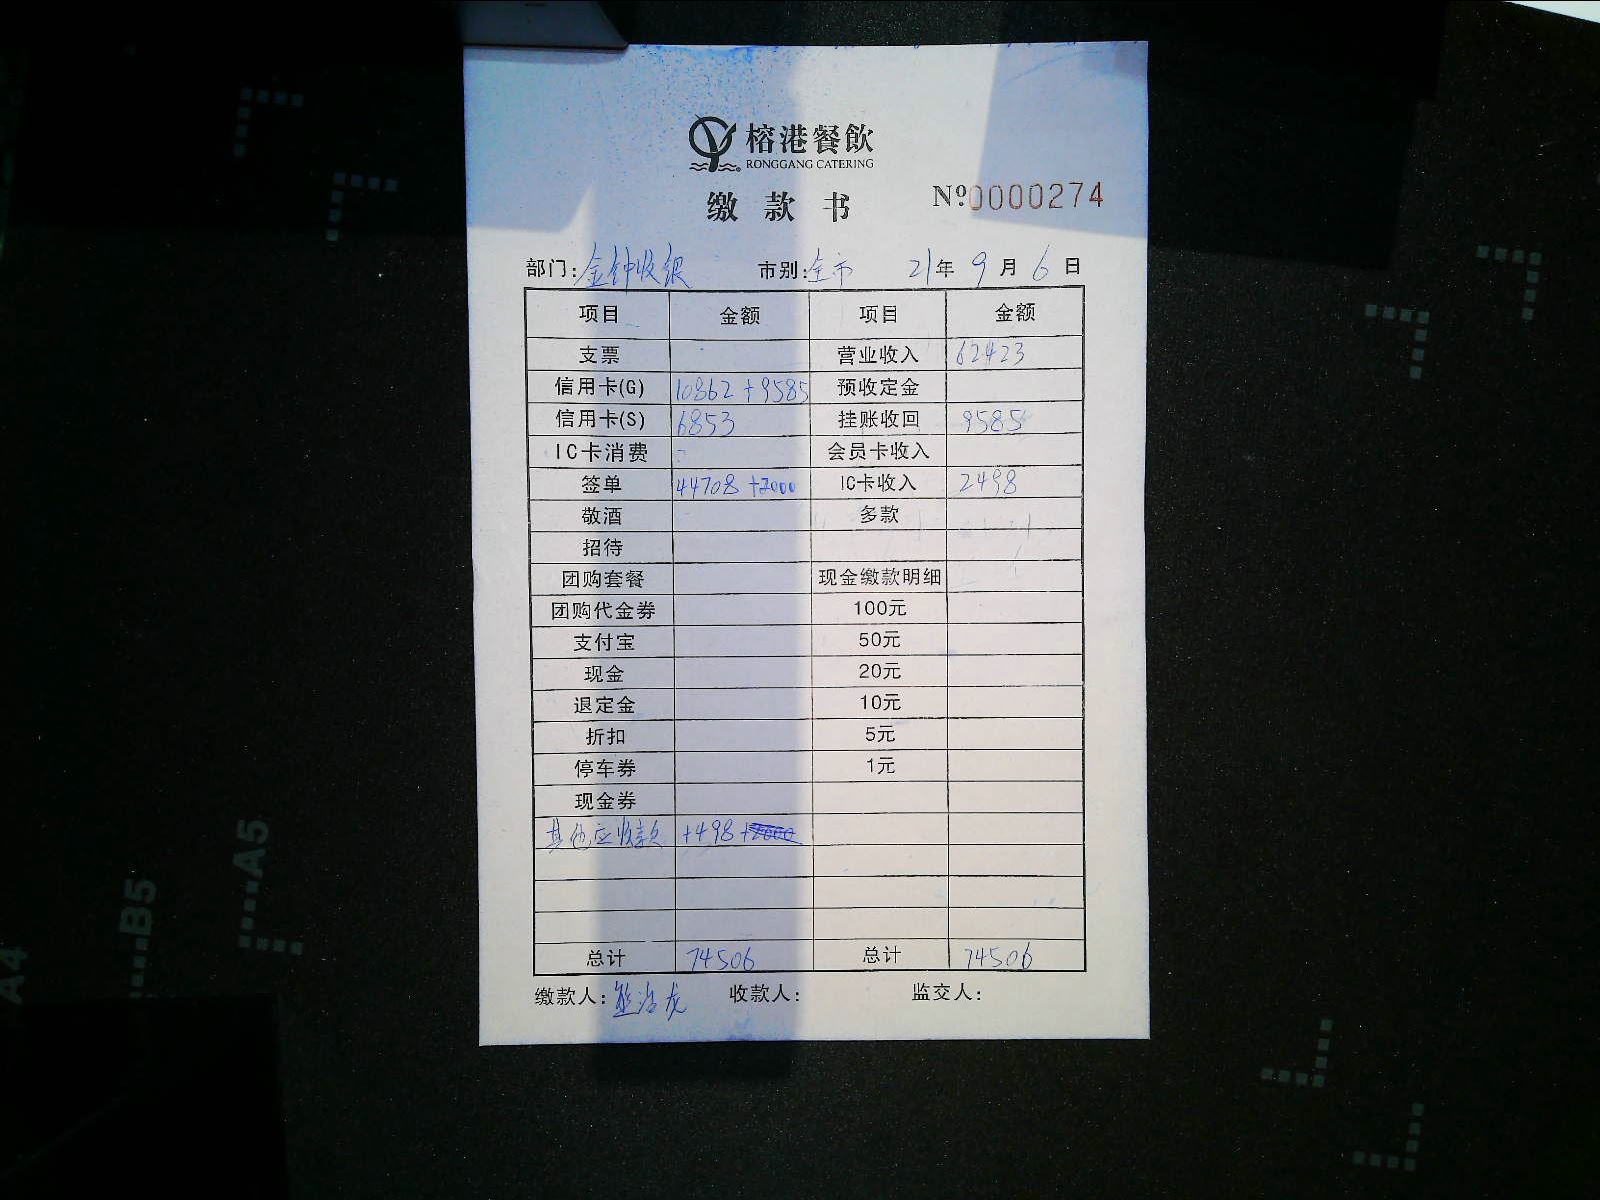 榕港餐飲
RONGGANG CATERING
缴款书 Nº0000274
部门:金钟收银 市别:全市 21年9月6日
项目 金额 项目 金额
支票 营业收入 62423
信用卡(G) 10862+9585 预收定金
信用卡(S) 6853 挂账收回 9585
IC卡消费 会员卡收入
签单 44708+2000 IC卡收入 2498
敬酒 多款
招待
团购套餐 现金缴款明细
团购代金券 100元
支付宝 50元
现金 20元
退定金 10元
折扣 5元
停车券 1元
现金券
其他应收款 +498+2000
总计 74506 总计 74506
缴款人: 收款人: 监交人:
A5
B5
A4